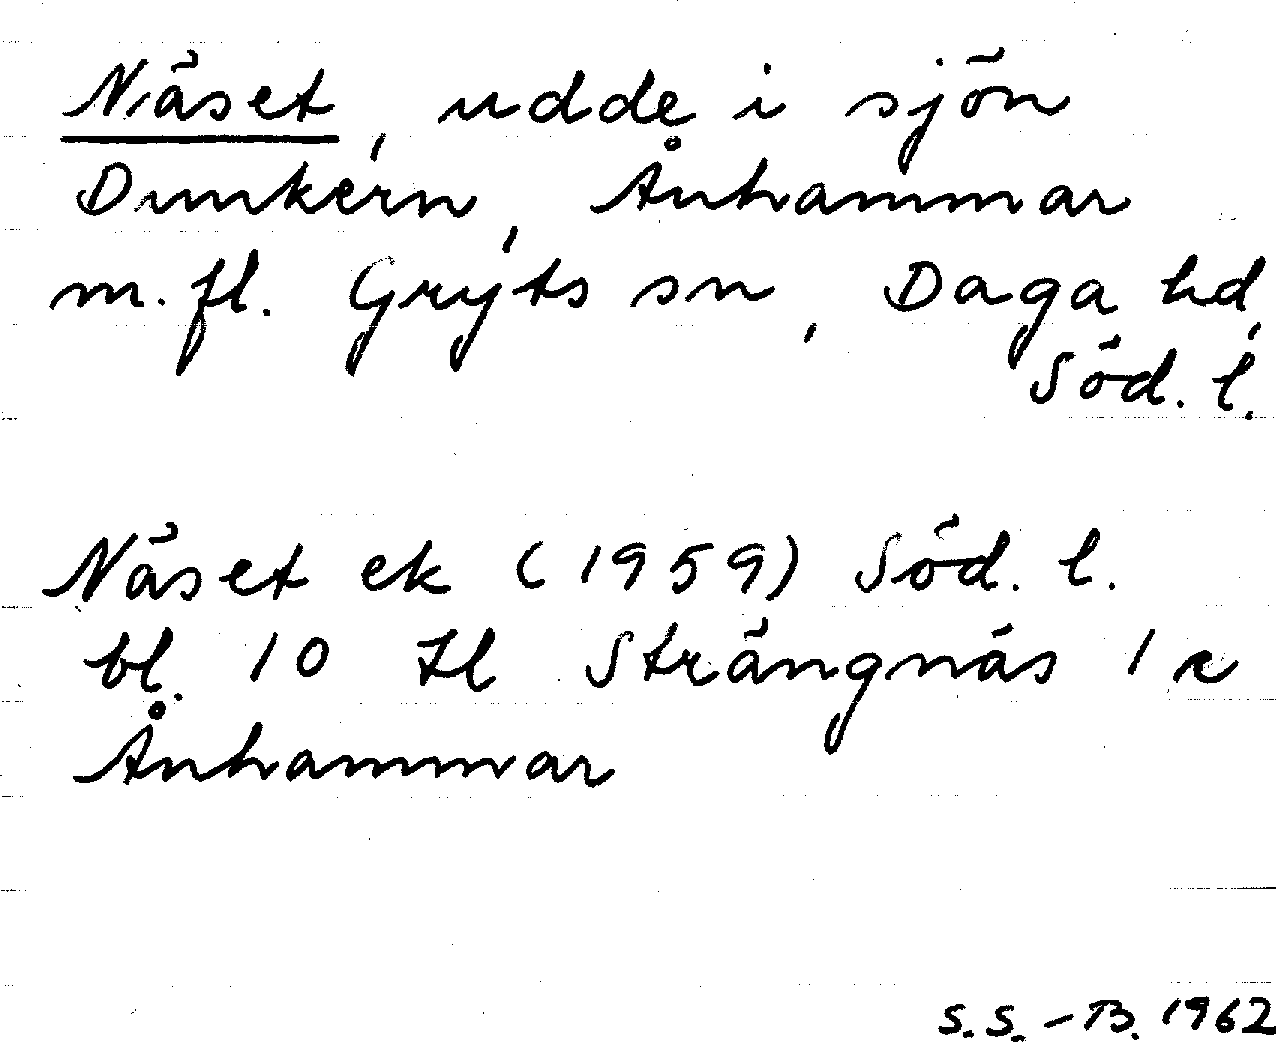 Näset, udde i sjön
Dunkern, Ånhammar
m.fl. Gryts sn, Daga hd,
Söd. l.
Näset ek (1959) Söd. l.
bl. 10 tl Strängnäs 1 c
Ånhammar
S.S.-B. 1962